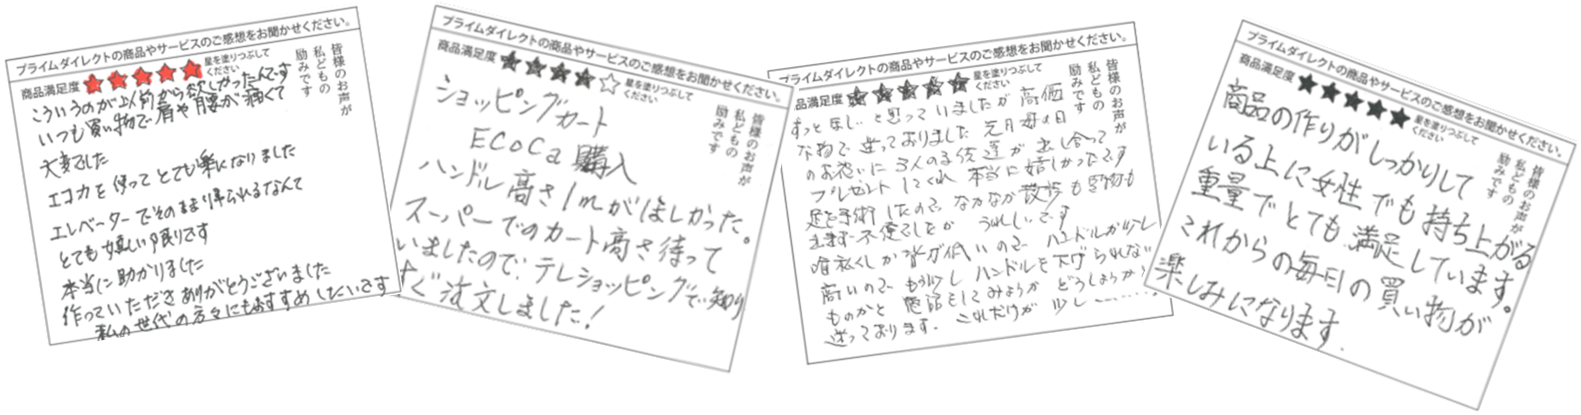 プライムダイレクトの商品やサービスのご感想をお聞かせください。
商品満足度 ★★★★★ 星を塗りつぶして
ください
皆様のお声が
私どもの
励みです
こういうのが以前から欲しかったんです
いつも買い物で肩や腰が痛くて
大変でした
エコカを使ってとても楽になりました
エレベーターでそのまま帰られるなんて
とても嬉しい限りです
本当に助かりました
作っていただきありがとうございました
私の世代の方々にもおすすめしたいです
プライムダイレクトの商品やサービスのご感想をお聞かせください。
商品満足度 ★★★★☆ 星を塗りつぶして
ください
皆様のお声が
私どもの
励みです
ショッピングカート
ECOCa 購入
ハンドル高さ1mがほしかった。
スーパーでのカート高さ待って
いましたので、テレショッピングで知り
すぐ注文しました!
プライムダイレクトの商品やサービスのご感想をお聞かせください。
商品満足度 ★★★★★ 星を塗りつぶして
ください
皆様のお声が
私どもの
励みです
ずっとほしいと思っていましたが高価
な物で迷っておりました 先月母の日
のお祝いに3人の子供達が出し合って
プレゼントしてくれ本当に嬉しかったです
足を手術したので、なかなか散歩も買物も
不便でしたが うれしいです
唯私しが背が低いので ハンドルが少し
高いので もう少しハンドルを下げられない
ものかと 電話をしてみようか どうしようか?
迷っております。これだけが 少し……
プライムダイレクトの商品やサービスのご感想をお聞かせください。
商品満足度 ★★★★★ 星を塗りつぶして
ください
皆様のお声が
私どもの
励みです
商品の作りがしっかりして
いる上に女性でも持ち上がる
重量でとても満足しています。
これからの毎日の買い物が
楽しみになります.